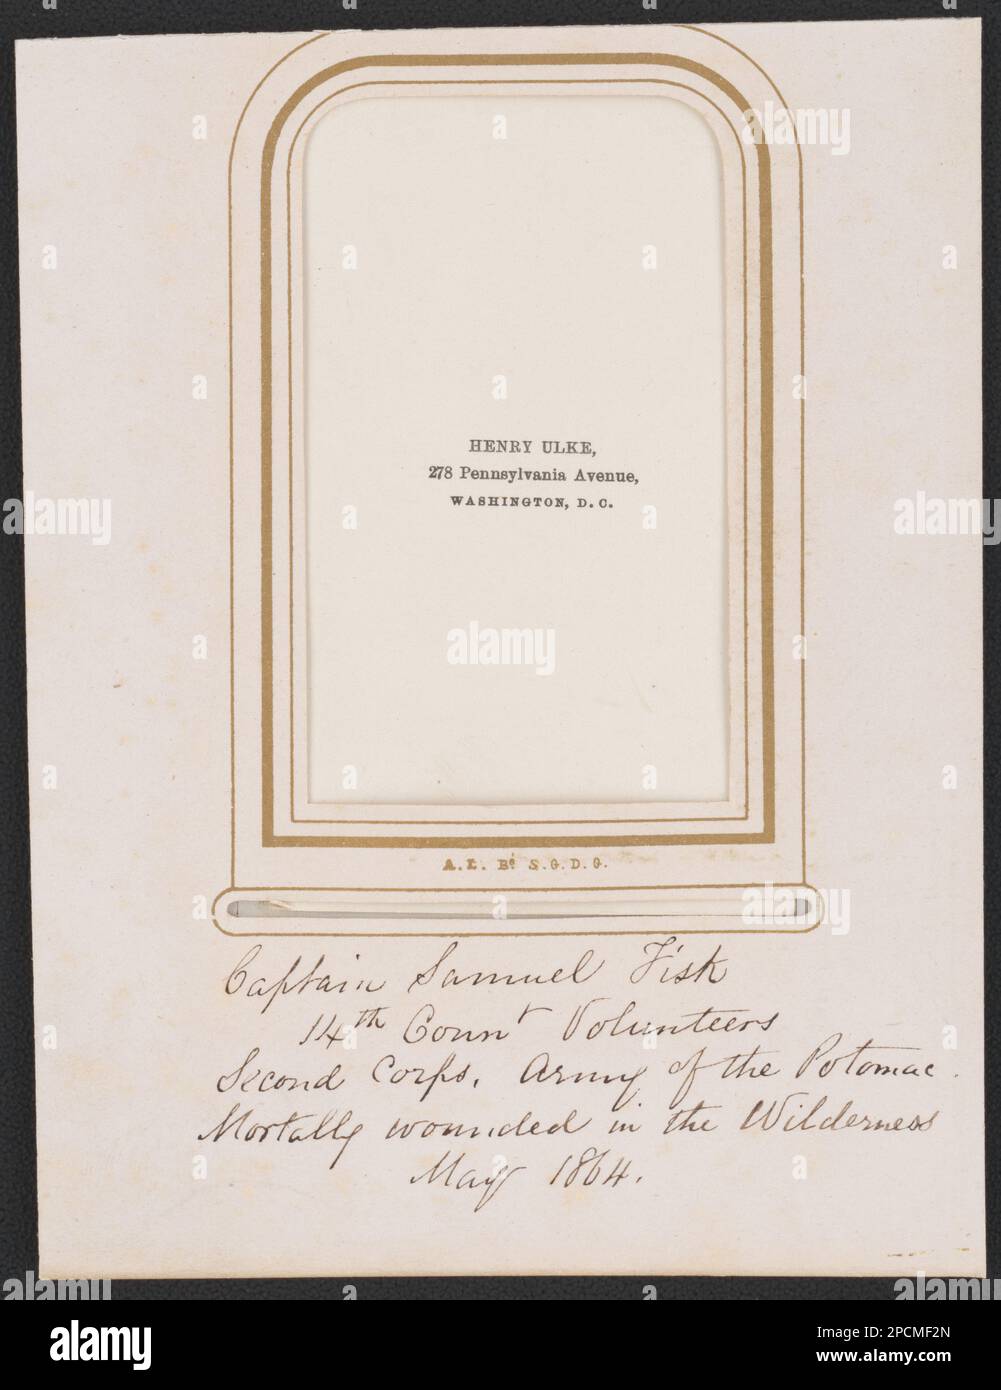 HENRY ULKE,
278 Pennsylvania Avenue,
WASHINGTON, D. C.
A. L. Bé S.G.D.G.
Captain Samuel Fisk
14th Connt Volunteers
Second Corps, Army of the Potomac.
Mortally wounded in the Wilderness
May 1864.
alamy
alamy
Image ID: 2PCMF2N
www.alamy.com